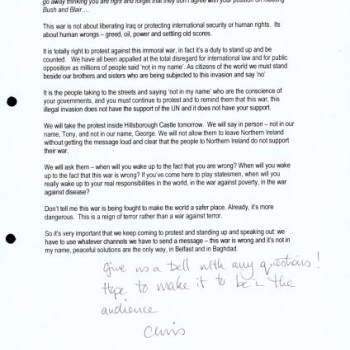 go away thinking you are right and forget that they don't agree with your position on meeting
Bush and Blair…
This war is not about liberating Iraq or protecting international security or human rights.  Its
about human wrongs – greed, oil, power and settling old scores.
It is totally right to protest against this immoral war, in fact it's a duty to stand up and be
counted.  We have all been appalled at the total disregard for international law and for public
opposition as millions of people said 'not in my name'. As citizens of the world we must stand
beside our brothers and sisters who are being subjected to this invasion and say 'no'
It is the people taking to the streets and saying 'not in my name' who are the conscience of
your governments, and you must continue to protest and to remind them that this war, this
illegal invasion does not have the support of the UN and it does not have your support.
We will take the protest inside Hillsborough Castle tomorrow.  We will say in person – not in our
name, Tony, and not in our name, George.  We will not allow them to leave Northern Ireland
without getting the message loud and clear that the people to Northern Ireland do not support
their war.
We will ask them – when will you wake up to the fact that you are wrong? When will you wake
up to the fact that this war is wrong? If you've come here to play statesmen, when will you
really wake up to your real responsibilities in the world, in the war against poverty, in the war
against disease?
Don't tell me this war is being fought to make the world a safer place. Already, it's more
dangerous.  This is a reign of terror rather than a war against terror.
So it's very important that we keep coming to protest and standing up and speaking out: we
have to use whatever channels we have to send a message – this war is wrong and it's not in
my name, peaceful solutions are the only way, in Belfast and in Baghdad.
Give us a bell with any questions!
Hope to make it to be in the
audience
Chris